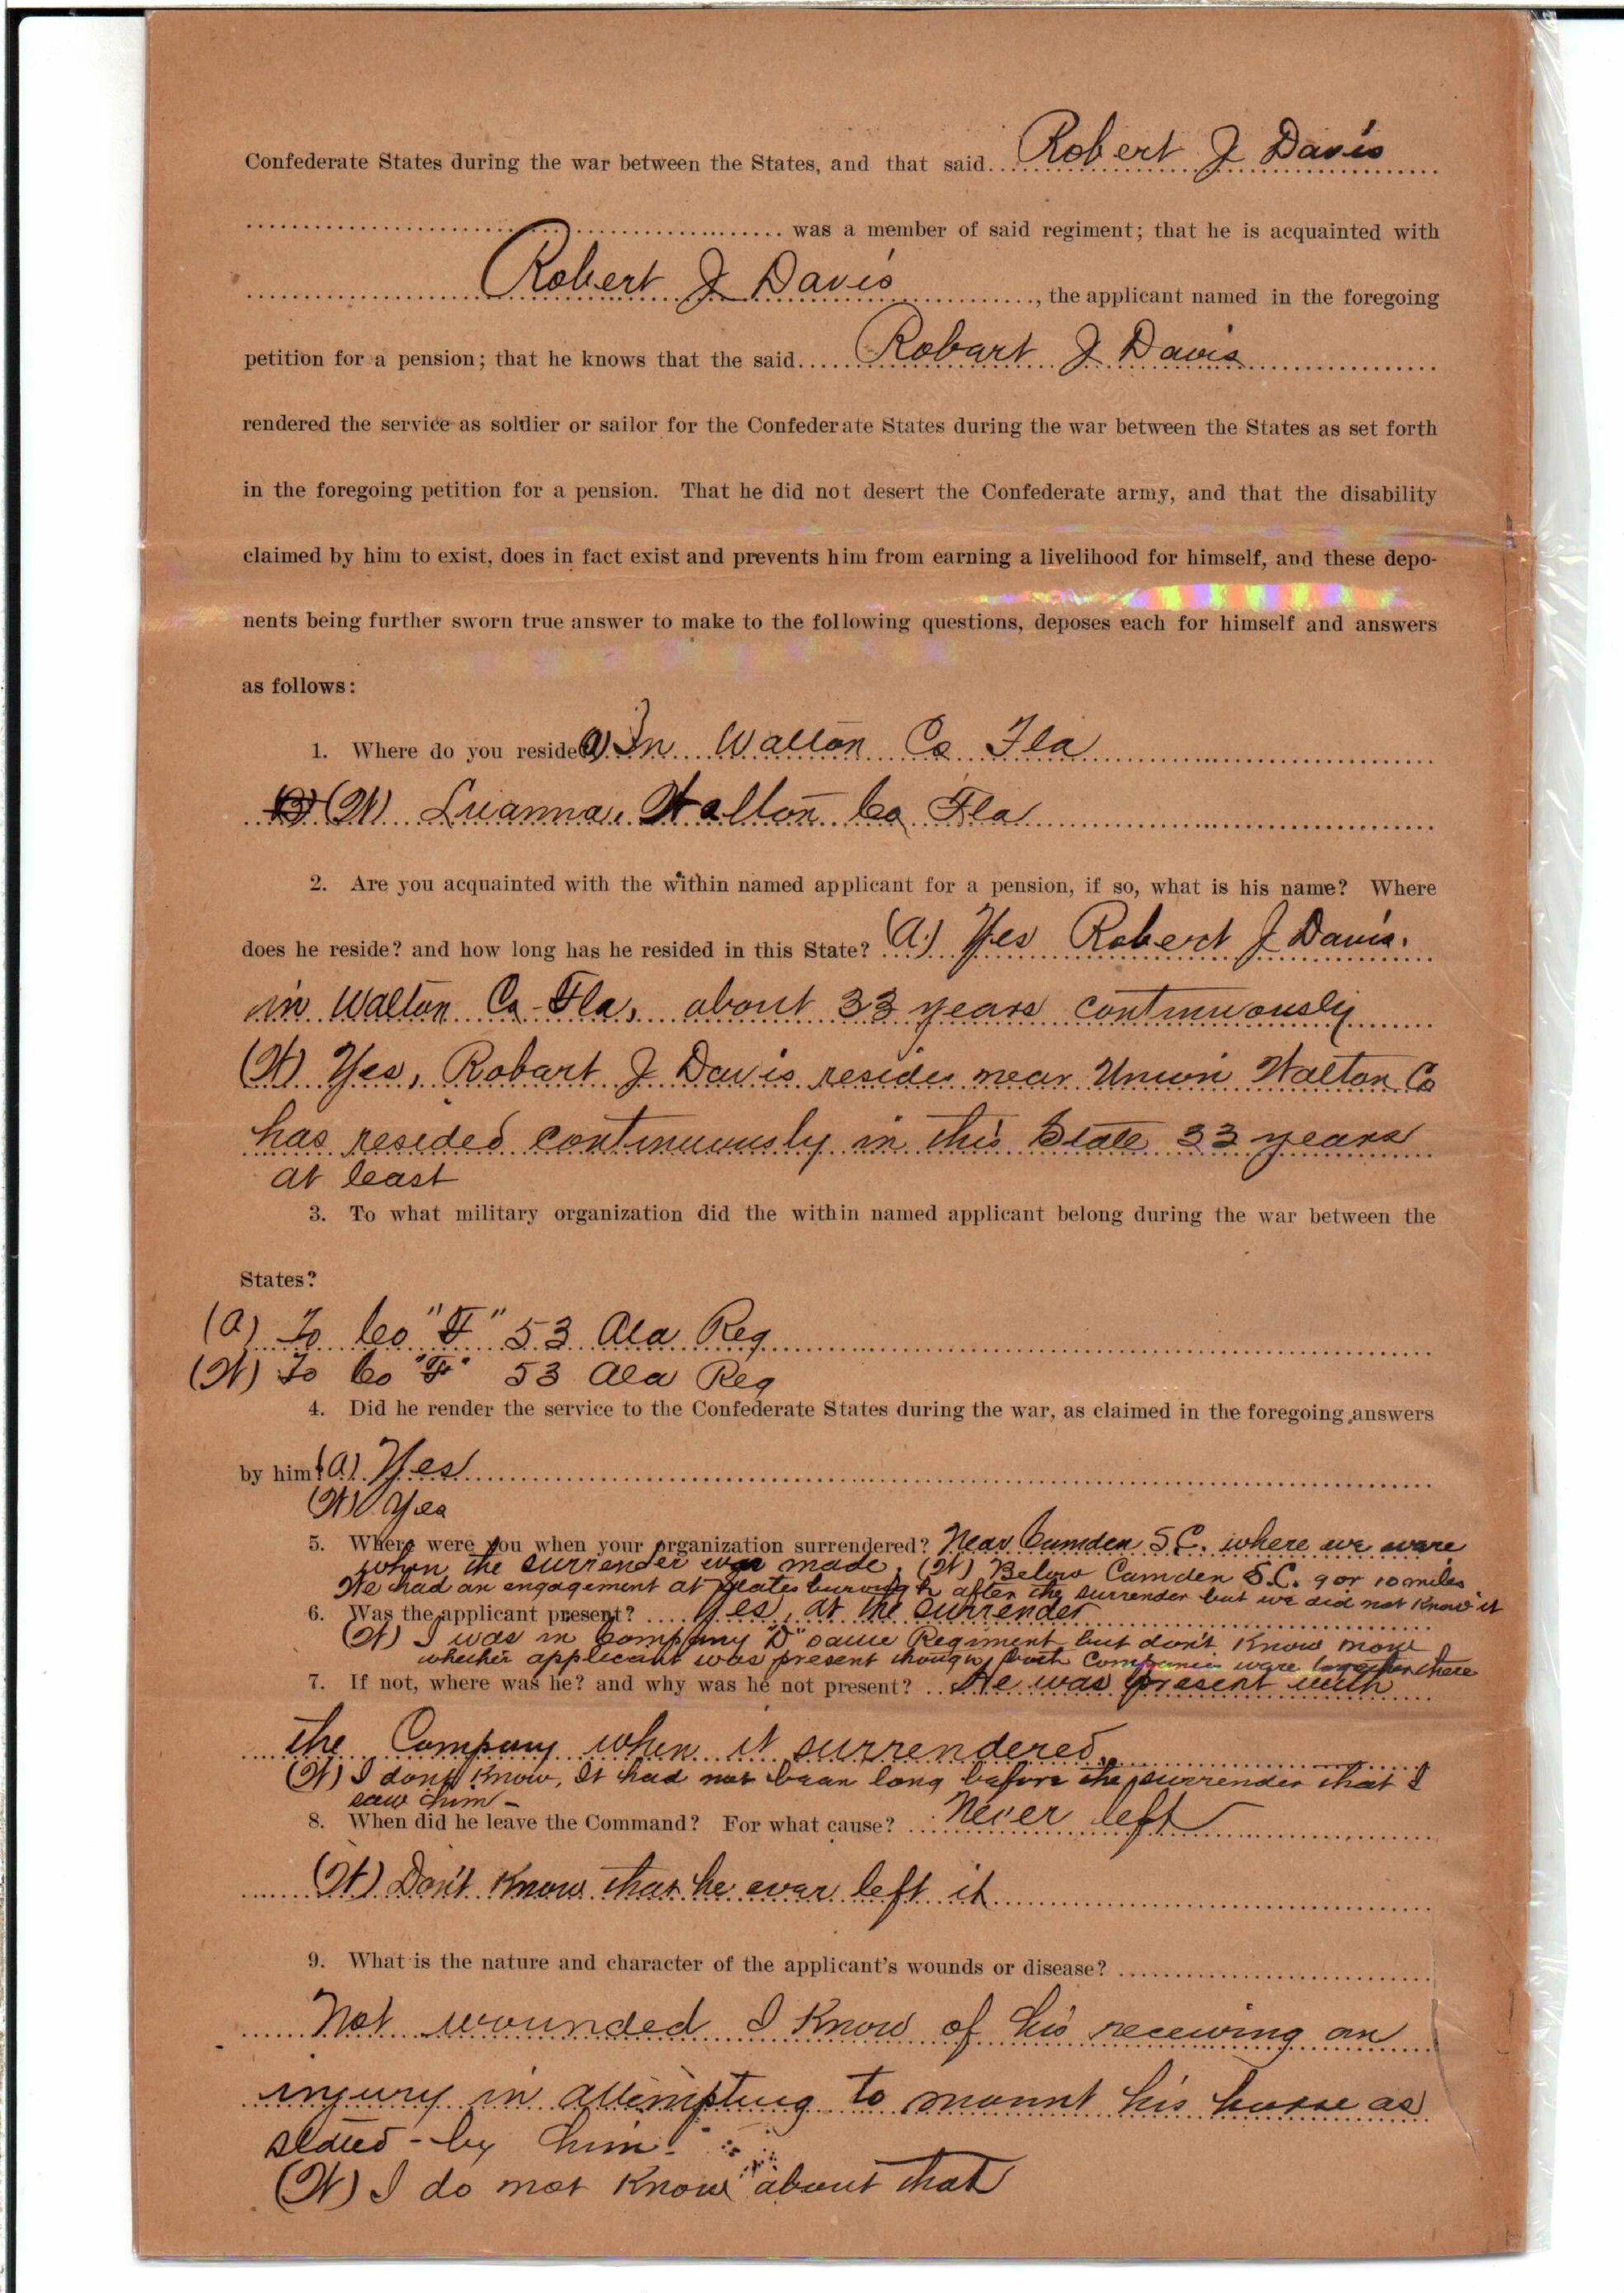 Confederate States during the war between the States, and that said Robert J Davis
was a member of said regiment; that he is acquainted with
Robert J Davis, the applicant named in the foregoing
petition for a pension; that he knows that the said Robart J Davis
rendered the service as soldier or sailor for the Confederate States during the war between the States as set forth
in the foregoing petition for a pension. That he did not desert the Confederate army, and that the disability
claimed by him to exist, does in fact exist and prevents him from earning a livelihood for himself, and these depo-
nents being further sworn true answer to make to the following questions, deposes each for himself and answers
as follows:
1. Where do you reside (a) In Walton Co Fla
(W) Luanna, Walton Co Fla
2. Are you acquainted with the within named applicant for a pension, if so, what is his name? Where
does he reside? and how long has he resided in this State? (a) Yes Robert J Davis.
in Walton Co Fla, about 33 years continuously
(W) Yes, Robart J Davis resides near Union Walton Co
has resided continuously in this State 33 years
at least
3. To what military organization did the within named applicant belong during the war between the
States?
(a) To Co "F" 53 Ala Reg
(W) To Co "F" 53 Ala Reg
4. Did he render the service to the Confederate States during the war, as claimed in the foregoing answers
by him? (a) Yes
(W) Yes
5. Where were you when your organization surrendered? Near Cumden S.C. where we were
when the surrender was made. (W) Below Camden S.C. 9 or 10 miles
We had an engagement at after the surrender but we did not know it
6. Was the applicant present? Yes, at the surrender
(W) I was in Company "D" same Regiment but don't know now
whether applicant was present though both Companies ware together there
7. If not, where was he? and why was he not present? He was present with
the Company when it surrendered.
(W) I don't know, It had not bean long before the surrender that I
saw him -
8. When did he leave the Command? For what cause? Never left
(W) Don't know that he ever left it
9. What is the nature and character of the applicant's wounds or disease?
Not wounded I know of his receiving an
injury in attempting to mount his horse as
stated - by him.
(W) I do not know about that